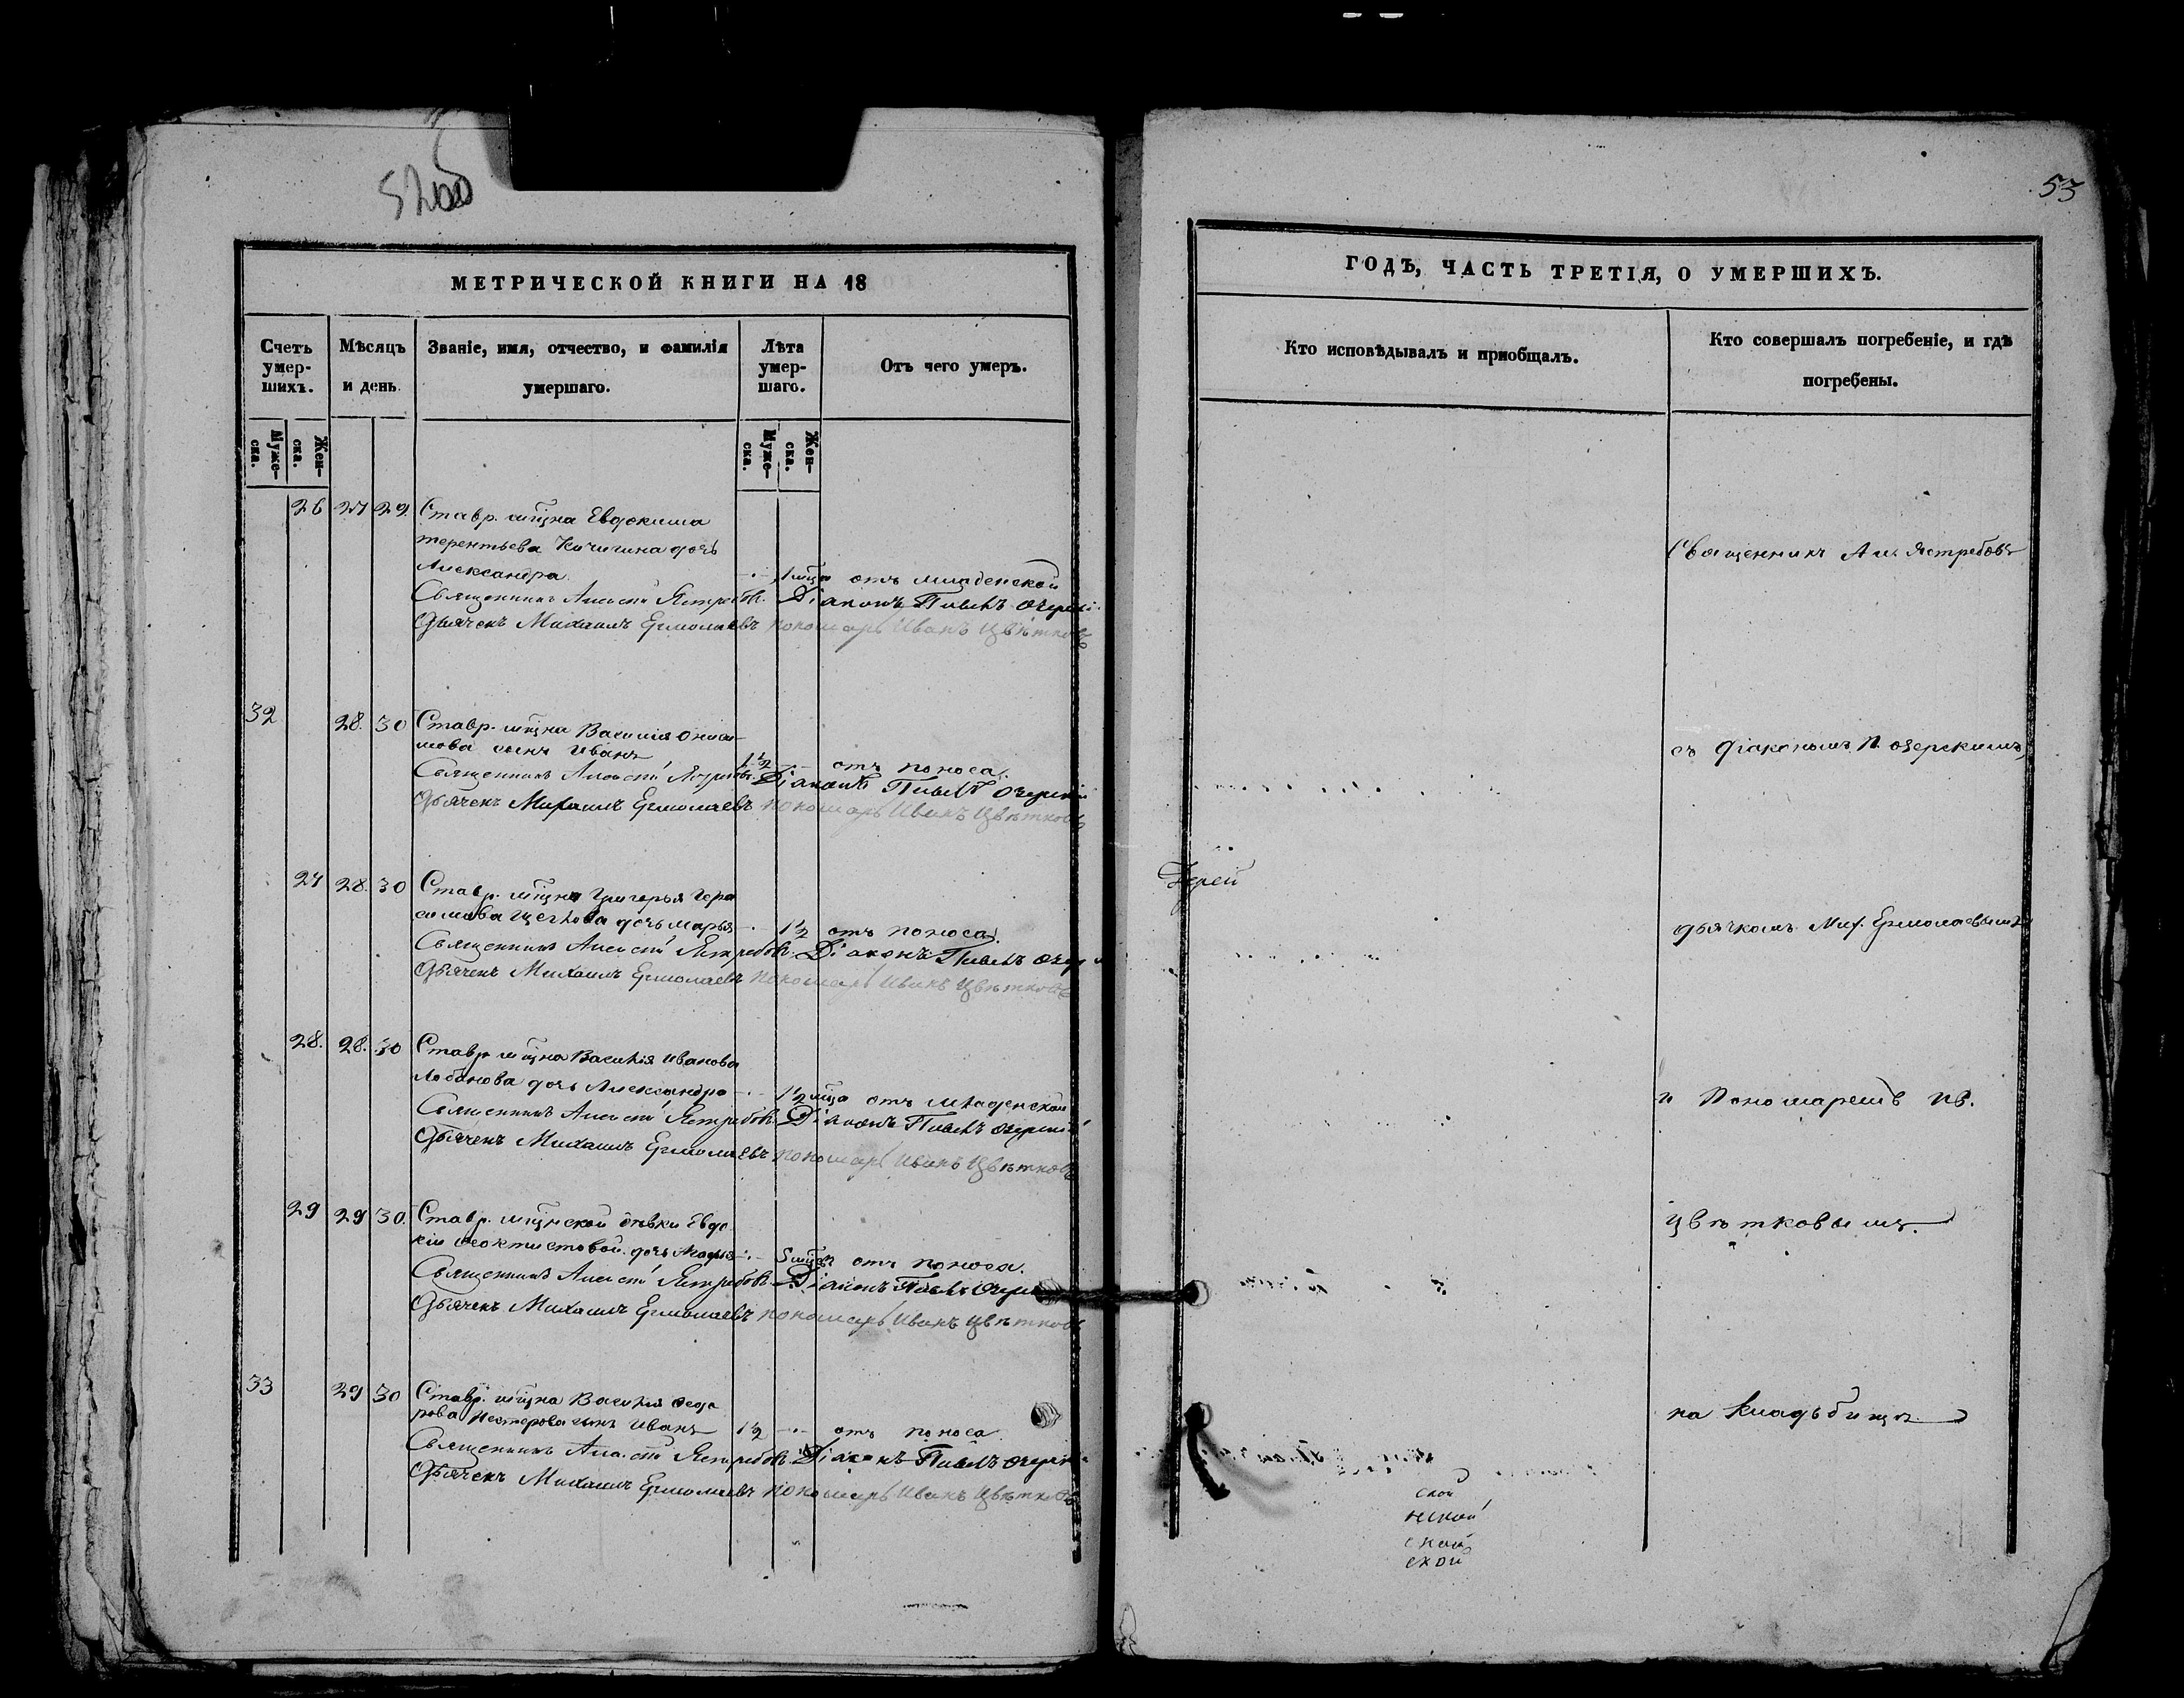 52об
МЕТРИЧЕСКОЙ КНИГИ НА 18
Счетъ умер-шихъ.
Мѣсяцъ и день.
Званіе, имя, отчество, и фамилія умершаго.
Лѣта умер-шаго.
Отъ чего умеръ.
Муже-ска.
Жен-ска.
Муже-ска.
Жен-ска.
26 27 29. Ставр. мѣщна Евдокима
терентьева Кичигина дочь
Александра 1 мца отъ младенской
Священникъ Алексѣй Ястребовъ. Діаконъ Павелъ Озерскій
Дьячекъ Михаилъ Ермолаевъ пономарь Иванъ Цвѣтковъ
32 28. 30 Ставр. мѣщна Василія Ониси-
мова сынъ Иванъ 1½ отъ поноса.
Священникъ Алексѣй Ястребовъ. Діаконъ Павелъ Озерскій
Дьячекъ Михаилъ Ермолаевъ пономарь Иванъ Цвѣтковъ
27 28. 30 Ставр. мѣщна Григорья Гера
симова Щеглова дочь марья 1½ отъ поноса.
Священникъ Алексѣй Ястребовъ. Діаконъ Павелъ Озер
Дьячекъ Михаилъ Ермолаевъ пономарь Иванъ Цвѣтковъ
28. 28. 30 Ставр мѣщна Василія Иванова
Лобанова дочь Александра 1½ мца отъ младенской
Священникъ Алексѣй Ястребовъ. Діаконъ Павелъ Озерскій
Дьячекъ Михаилъ Ермолаевъ пономарь Иванъ Цвѣтковъ
29 29 30. Ставр. мѣщнской дѣвки Евдо
кіи Ѳеоктистовой дочь 5 отъ поноса.
Священникъ Алексѣй Ястребовъ. Діаконъ Павелъ Озерс
Дьячекъ Михаилъ Ермолаевъ пономарь Иванъ Цвѣтковъ
33 29 30 Ставр. мѣщна Василія Ѳедо
рова Нестерова сынъ Иванъ 1½ отъ поноса
Священникъ Алексѣй Ястребовъ. Діаконъ Павелъ Озерскі
Дьячекъ Михаилъ Ермолаевъ пономарь Иванъ Цвѣтковъ
53
ГОДЪ, ЧАСТЬ ТРЕТІЯ, О УМЕРШИХЪ.
Кто исповѣдывалъ и пріобщалъ.
Кто совершалъ погребеніе, и гдѣ
погребены.
Священникъ Ал. Ястребовъ
съ діакономъ П. Озерскимъ,
Іерей
дьячкомъ Мих. Ермолаевымъ
и Пономаремъ Ив.
Цвѣтковымъ.
на Кладьбищѣ.
ской
нской
ской
ской